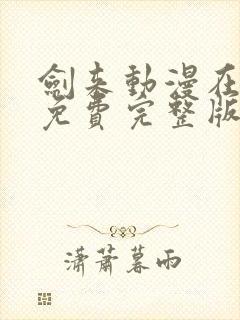 劍来動漫在
免費完整版
瀟蕭暮雨